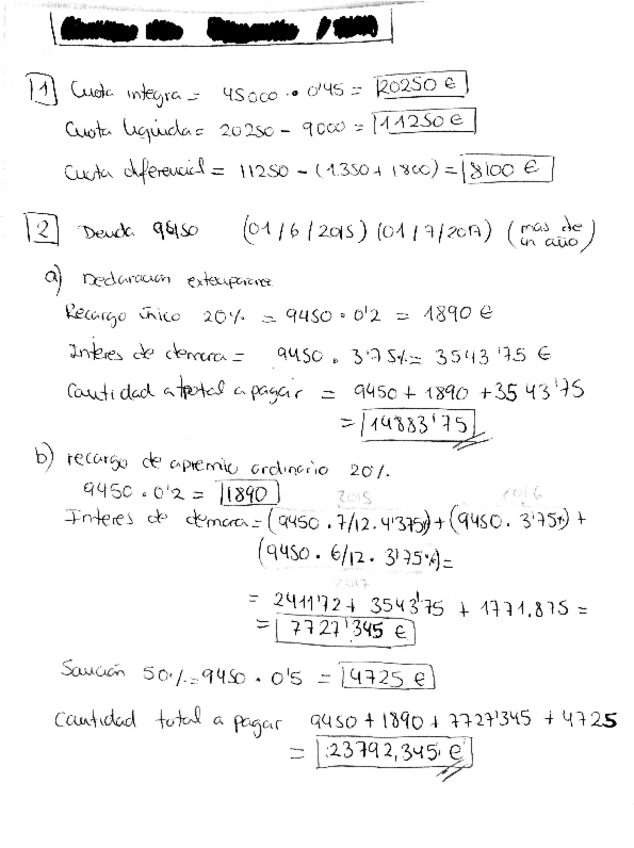 1 Cuota integra = 45000 · 0'45 = 20250 €
Cuota liquida = 20250 - 9000 = 11250 €
Cuota diferencial = 11250 - (1350 + 1800) = 8100 €
2 Deuda 9450 (01/6/2015) (01/7/2017) (mas de un año)
a) Declaracion extemporanea
Recargo único 20% = 9450 · 0'2 = 1890 €
Interes de demora = 9450 · 3'75% = 3543'75 €
Cantidad total a pagar = 9450 + 1890 + 3543'75
= 14883'75
b) recargo de apremio ordinario 20%.
9450 · 0'2 = 1890
2015 2016
Interes de demora = (9450 · 7/12 · 4'375%) + (9450 · 3'75%) +
(9450 · 6/12 · 3'75%) =
2017
= 2411'72 + 3543'75 + 1771.875 =
= 7727'345 €
Sanción 50% = 9450 · 0'5 = 4725 €
Cantidad total a pagar 9450 + 1890 + 7727'345 + 4725
= 23792,345 €